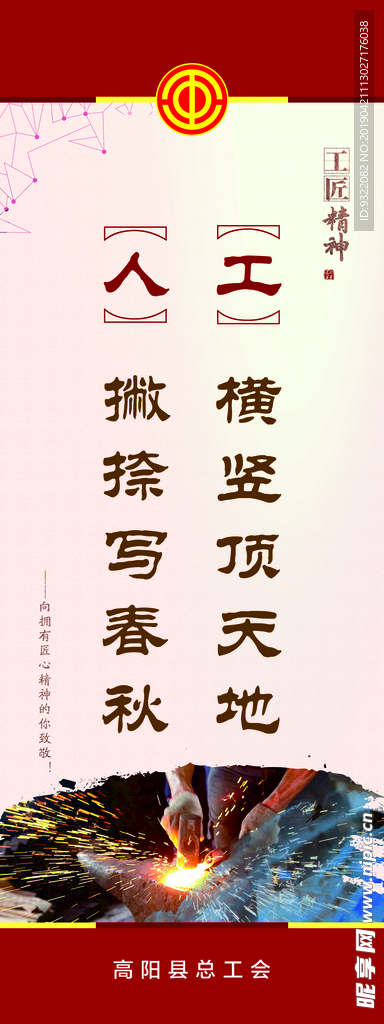 工匠精神
工 横竖顶天地
人 撇捺写春秋
——向拥有匠心精神的你致敬！
高阳县总工会
ID:9322082 NO:20190421113027176038
昵享网 www.nipic.cn